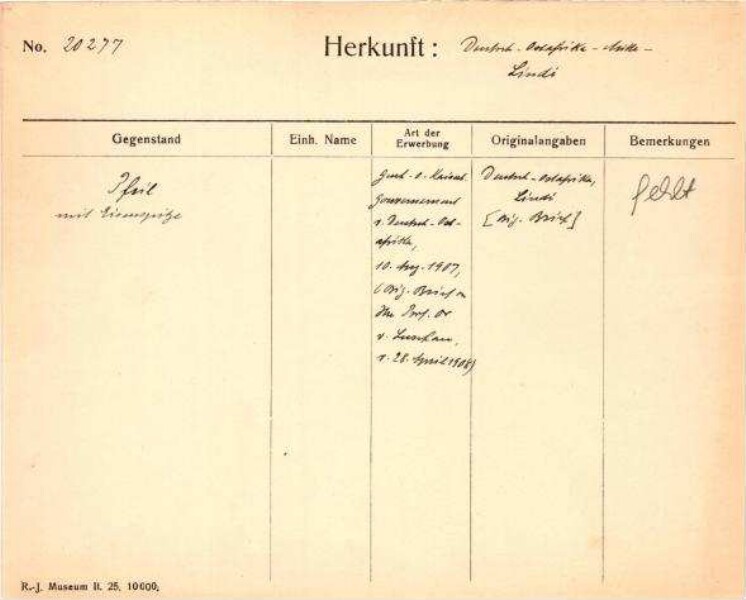 No. 20277
Herkunft: Deutsch-Ostafrika-
Lindi
Gegenstand
Einh. Name
Art der
Erwerbung
Originalangaben
Bemerkungen
Pfeil
mit Eisenspitze
Gesch. d. Kaiserl.
Gouvernement
v. Deutsch-Ost-
afrika,
10. Aug. 1907,
(Orig. Brief
Prof. Dr
v. Luschan,
v. 28. April 1908)
Deutsch-Ostafrika,
Lindi
[Orig. Brief]
fehlt
R.-J. Museum II. 25. 10000.